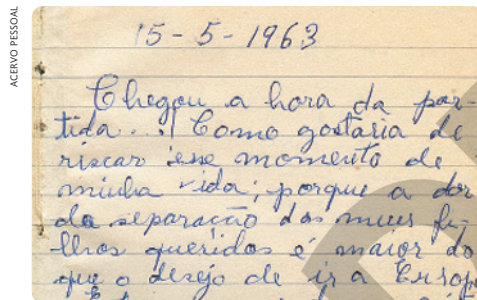 ACERVO PESSOAL
15-5-1963
Chegou a hora da par-
tida...! Como gostaria de
riscar esse momento de
minha vida; porque a dor
da separação dos meus fi-
lhos queridos é maior do
que o desejo de ir a Europ